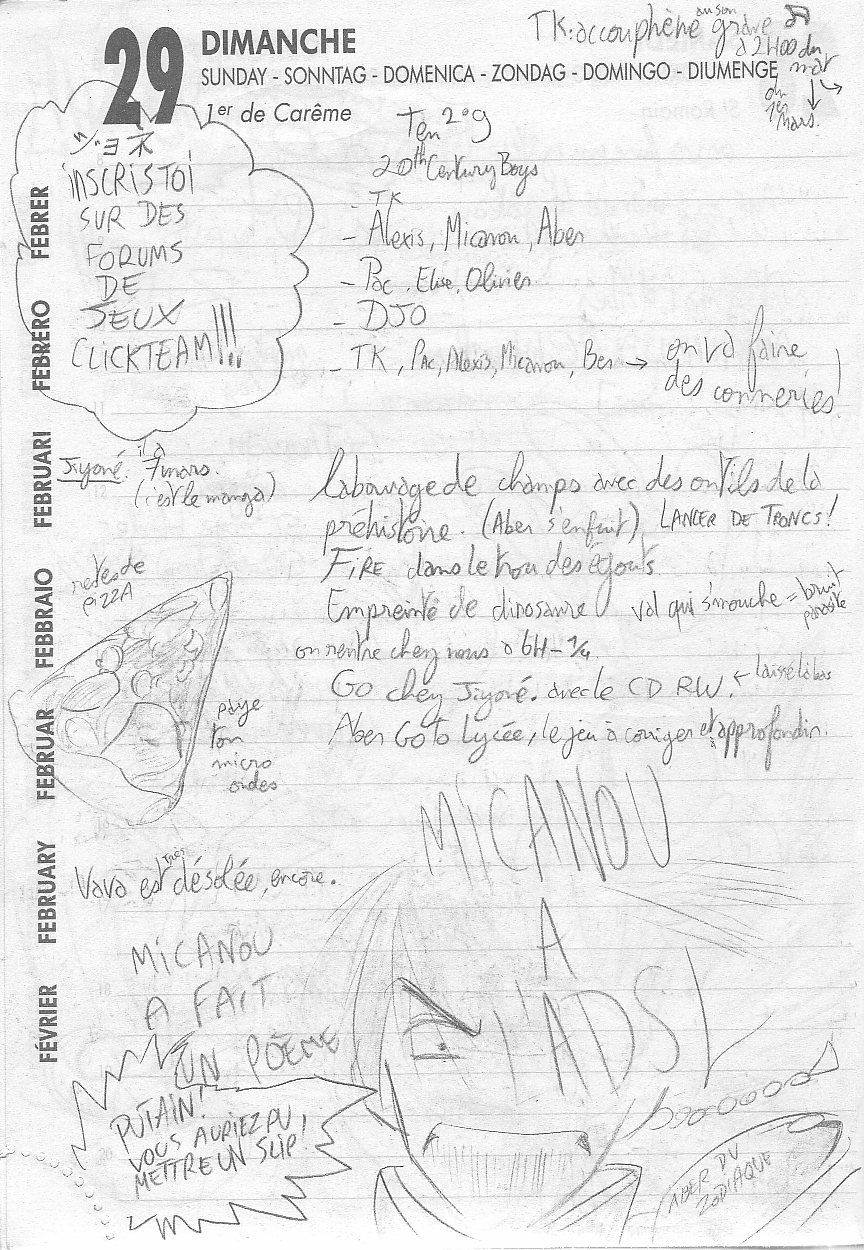 29 DIMANCHE
SUNDAY - SONNTAG - DOMENICA - ZONDAG - DOMINGO - DIUMENGE
1er de Carême
TK: accouphène au son grave
à 2H00 du
mat
du
1er
Mars.
ジョネ
iNSCRIS TOI
SUR DES
FORUMS
DE
JEUX
CLICKTEAM!!!
Ten 2°9
20th Century Boys
- TK
- Alexis, Micanou, Aber
- Pac, Elise, Olivier
- DJO
- TK, Pac, Alexis, Micanou, Ber → on va faire
des conneries!
Jiyoné: 7 mars.
(c'est le manga)
labourage de champs avec des outils de la
préhistoire. (Aber s'enfuit) LANCER DE TRONCS!
FiRE dans le trou des égouts
Empreinte de dinosaure val qui s'mouche = bruit
parasite
on rentre chez nous à 6H-1/4
Go chez Jiyoné. avec le CD RW. ← laissé là bas
Aber Go to Lycée, le jeu à corriger et à approfondir.
restes de
PIZZA
paye
ton
micro
ondes
MiCANOU
A
L'ADSL
Vava est très désolée, encore.
MiCANOU
A FAiT
UN POÈME
PUTAIN!
VOUS AURIEZ PU
METTRE UN SLIP!
ABER DU
ZODIAQUE
FÉVRIER FEBRUARY FEBRUAR FEBBRAIO FEBRUARI FEBRERO FEBRER